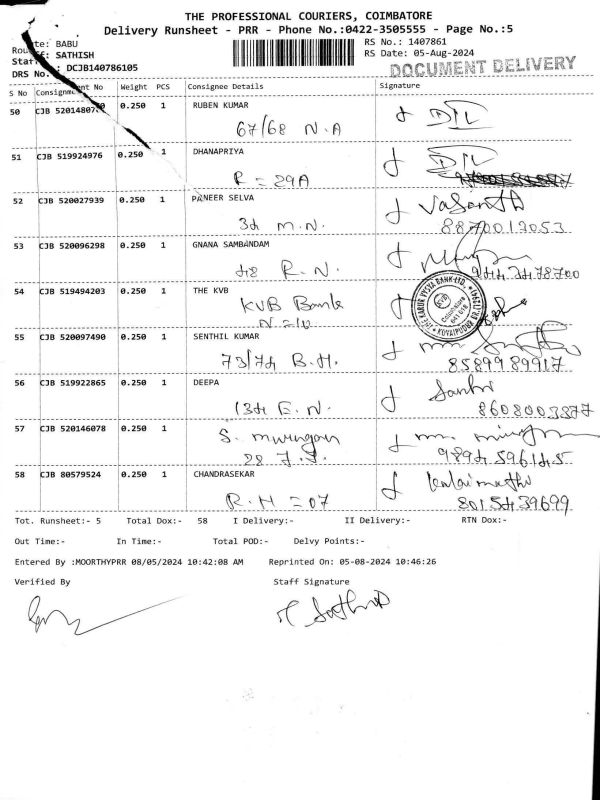 THE PROFESSIONAL COURIERS, COIMBATORE
Delivery Runsheet - PRR - Phone No.:0422-3505555 - Page No.:5
te: BABU
RS No.: 1407861
SATHISH
RS Date: 05-Aug-2024
DOCUMENT DELIVERY
DRS No. : DCJB140786105
S No Consignment No Weight PCS Consignee Details Signature
50 CJB 5201480 0.250 1 RUBEN KUMAR
67/68 N.A
51 CJB 519924976 0.250 1 DHANAPRIYA
R = 29A
52 CJB 520027939 0.250 1 PANEER SELVA
34 M.N. Vasanth
8870013053
53 CJB 520096298 0.250 1 GNANA SAMBANDAM
48 R.N.
9443478700
54 CJB 519494203 0.250 1 THE KVB
KVB Bank
KARUR VYSYA BANK LTD.
KVB
COIMBATORE
55 CJB 520097490 0.250 1 SENTHIL KUMAR
73/74 B.H.
8589989917
56 CJB 519922865 0.250 1 DEEPA
134 E.N.
8608003877
57 CJB 520146078 0.250 1
S. Murugan
9894596145
58 CJB 80579524 0.250 1 CHANDRASEKAR
R.H = 07 kalaimathi
8015439699
Tot. Runsheet:- 5 Total Dox:- 58 I Delivery:- II Delivery:- RTN Dox:-
Out Time:- In Time:- Total POD:- Delvy Points:-
Entered By :MOORTHYPRR 08/05/2024 10:42:08 AM Reprinted On: 05-08-2024 10:46:26
Verified By Staff Signature